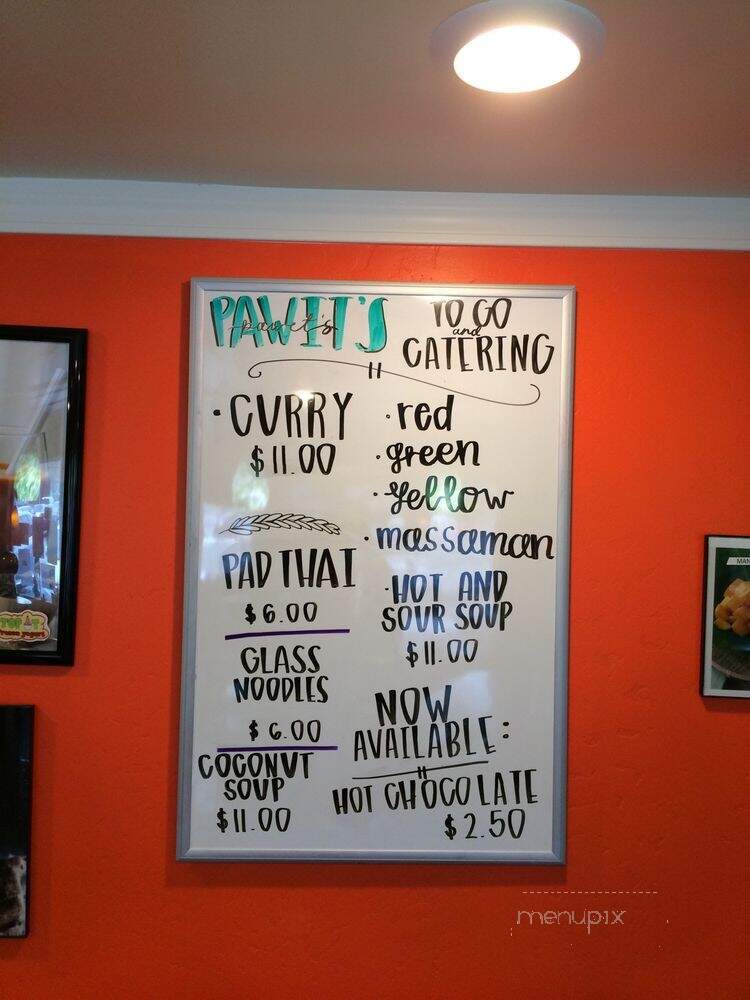 PAWIT'S
pawit's
TO GO
and
CATERING
· CURRY
$11.00
· red
· green
· yellow
· massaman
PAD THAI
$6.00
GLASS
NOODLES
$6.00
COCONUT
SOUP
$11.00
· HOT AND
SOUR SOUP
$11.00
NOW
AVAILABLE:
HOT CHOCOLATE
$2.50
MAN
menupix